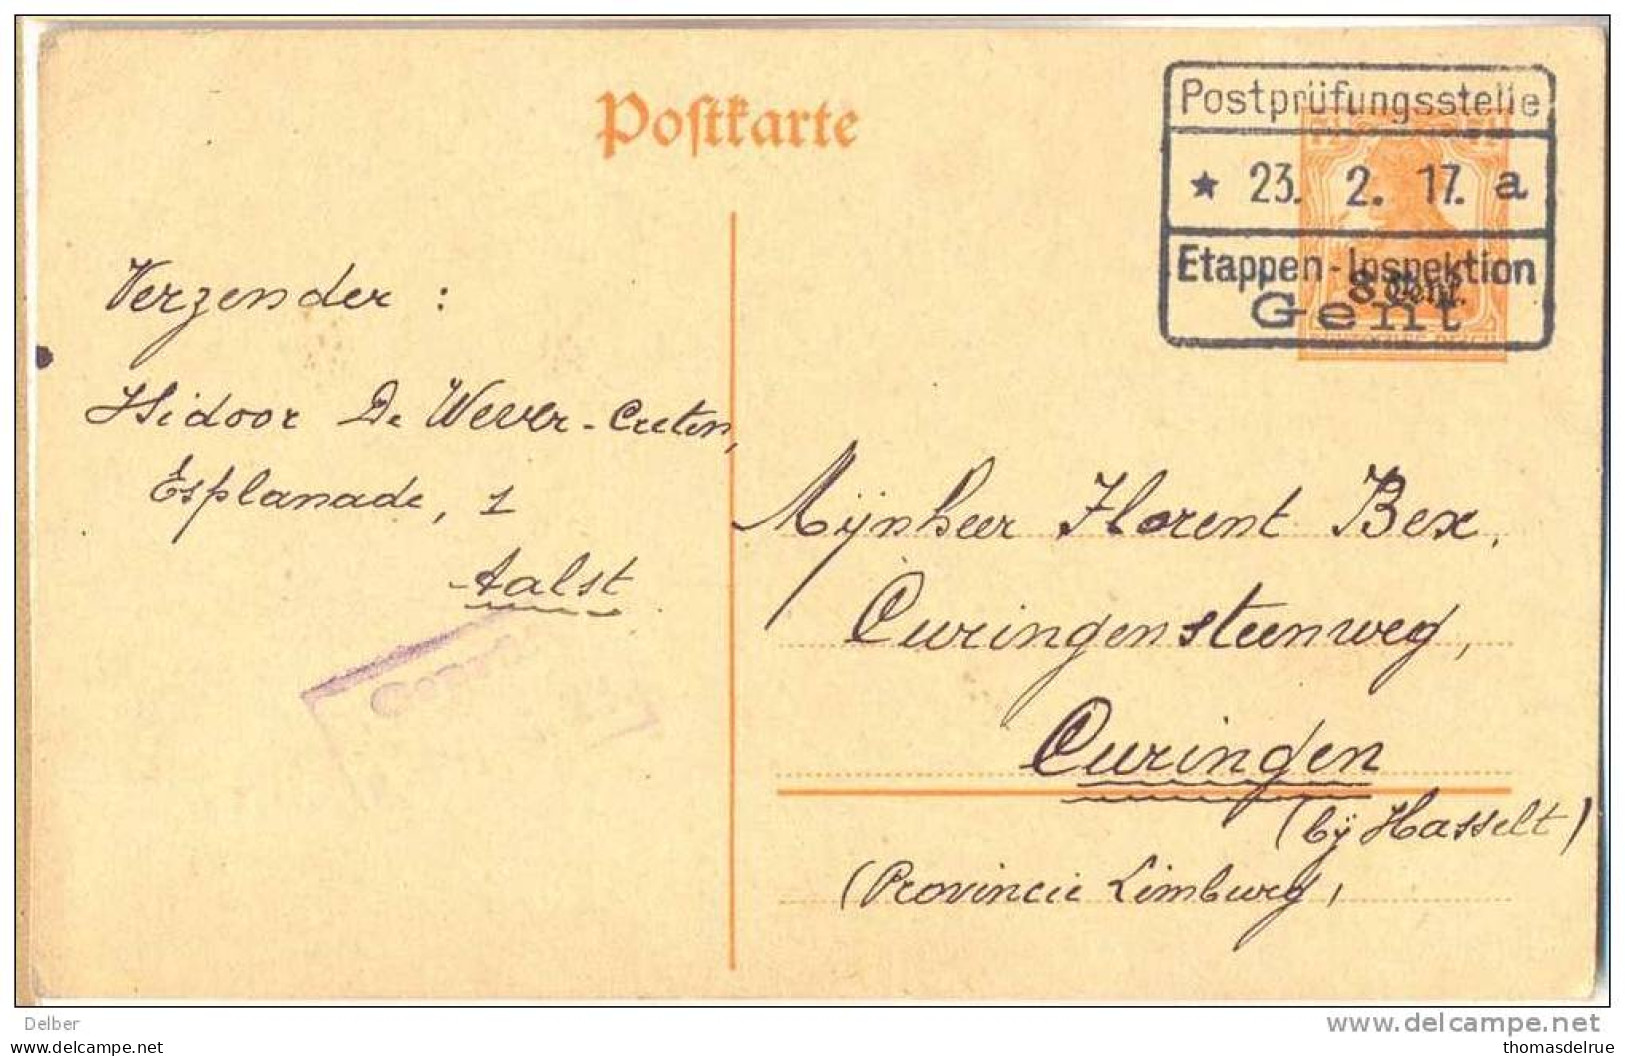 Postkarte
Postprüfungsstelle
★ 23. 2. 17. a
Etappen-Inspektion
Gent
8 Cent.
Verzender :
Isidoor De Wever-Creten,
Esplanade, 1
Aalst
Mijnheer Florent Bex,
Curingensteenweg,
Curingen
(bij Hasselt)
(Provincie Limburg)
Delber
www.delcampe.net
www.delcampe.com
thomasdelrue